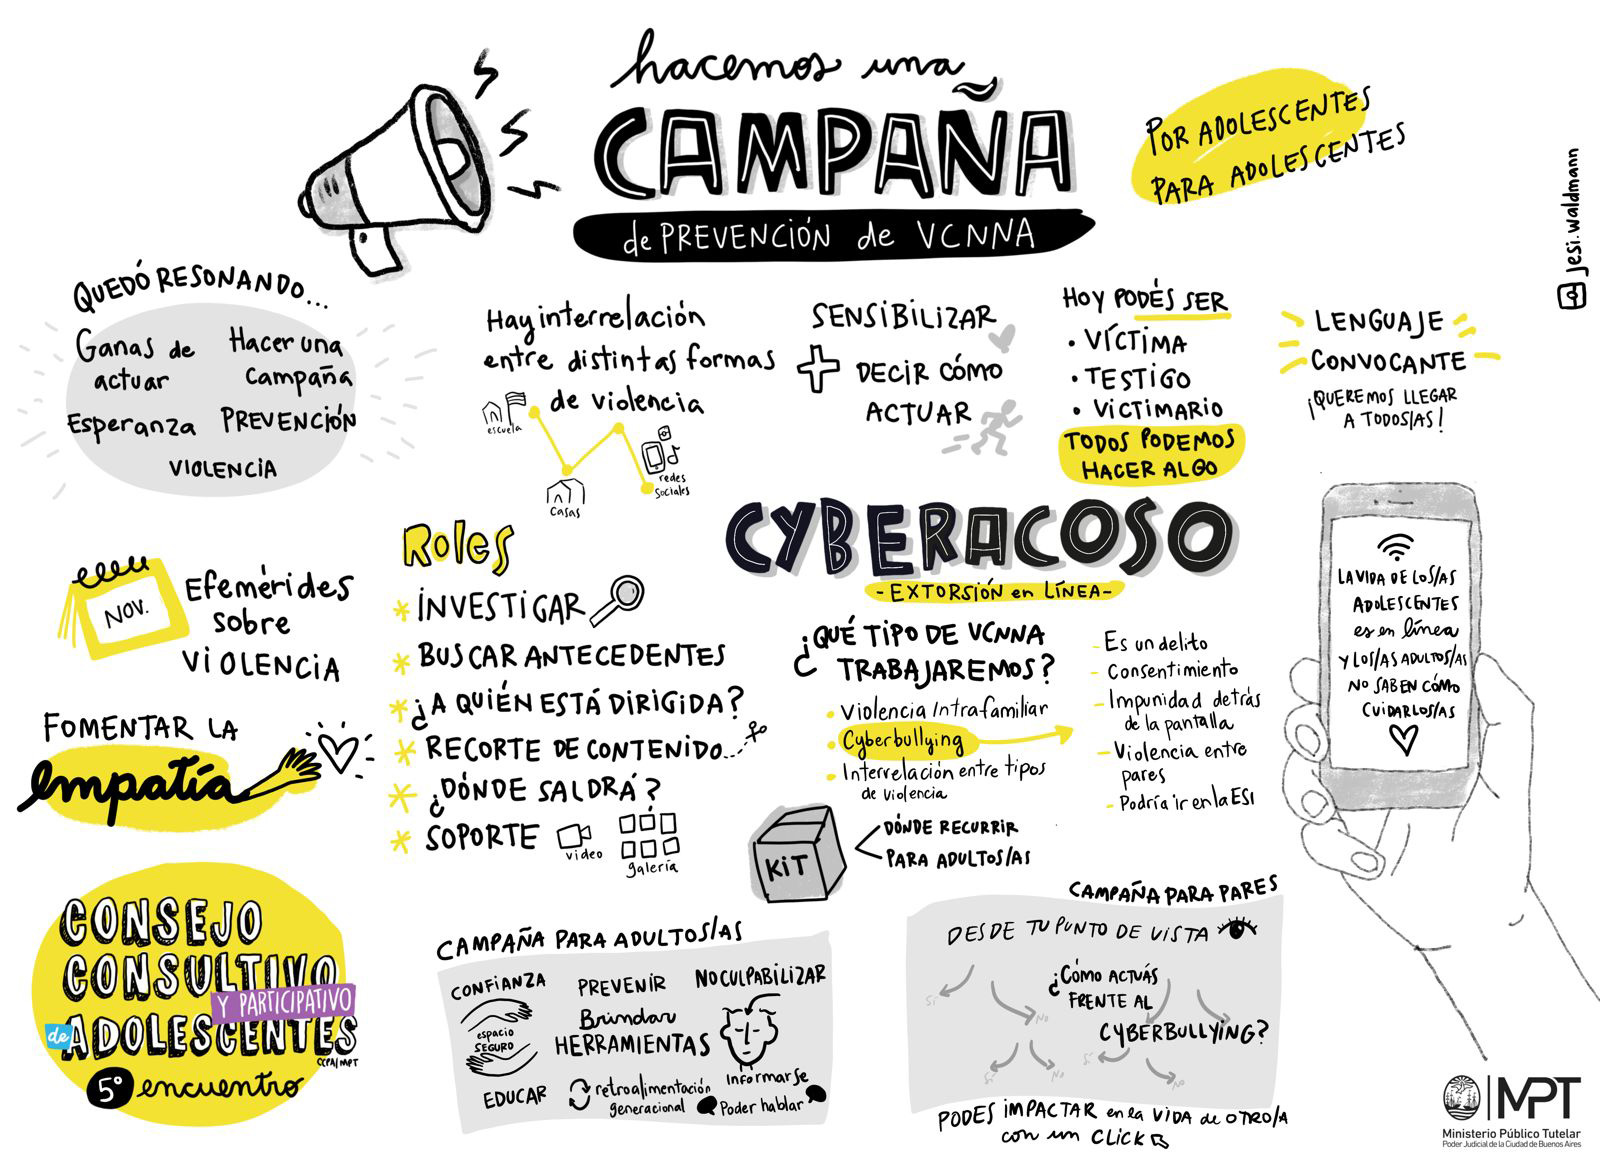 hacemos una
CAMPAÑA
de PREVENCIÓN de VCNNA
POR ADOLESCENTES
PARA ADOLESCENTES
jesi.waldmann
QUEDÓ RESONANDO...
Ganas de actuar
Hacer una Campaña
Esperanza
PREVENCIÓN
VIOLENCIA
Hay interrelación
entre distintas formas
de violencia
escuela
casas
redes
sociales
SENSIBILIZAR
+ DECIR CÓMO
ACTUAR
HOY PODÉS SER
• VÍCTIMA
• TESTIGO
• VICTIMARIO
TODOS PODEMOS
HACER ALGO
LENGUAJE
CONVOCANTE
¡QUEREMOS LLEGAR
A TODOS/AS!
NOV.
Efemérides
sobre
VIOLENCIA
FOMENTAR LA
empatía
Roles
* INVESTIGAR
* BUSCAR ANTECEDENTES
* ¿A QUIÉN ESTÁ DIRIGIDA?
* RECORTE DE CONTENIDO...
* ¿DÓNDE SALDRÁ?
* SOPORTE
video
galería
CYBERACOSO
- EXTORSIÓN en LÍNEA -
¿QUÉ TIPO DE VCNNA
TRABAJAREMOS?
• Violencia Intrafamiliar
• Cyberbullying
• Interrelación entre tipos
de violencia
- Es un delito
- Consentimiento
- Impunidad detrás
de la pantalla
- Violencia entre
pares
- Podría ir en la ESI
KIT
DÓNDE RECURRIR
PARA ADULTOS/AS
LA VIDA DE LOS/AS
ADOLESCENTES
es en línea
Y LOS/AS ADULTOS/AS
NO SABEN CÓMO
CUIDARLOS/AS
CONSEJO
CONSULTIVO
Y PARTICIPATIVO
de ADOLESCENTES
CCPA/MPT
5° encuentro
CAMPAÑA PARA ADULTOS/AS
CONFIANZA
espacio
SEGURO
EDUCAR
PREVENIR
Brindar
HERRAMIENTAS
retroalimentación
generacional
NO CULPABILIZAR
Informarse
Poder hablar
CAMPAÑA PARA PARES
DESDE TU PUNTO DE VISTA
¿CÓMO ACTUÁS
FRENTE AL
CYBERBULLYING?
Sí
No
No
Sí
No
Sí
No
PODES IMPACTAR en la VIDA de OTRO/A
con un CLICK
MPT
Ministerio Público Tutelar
Poder Judicial de la Ciudad de Buenos Aires